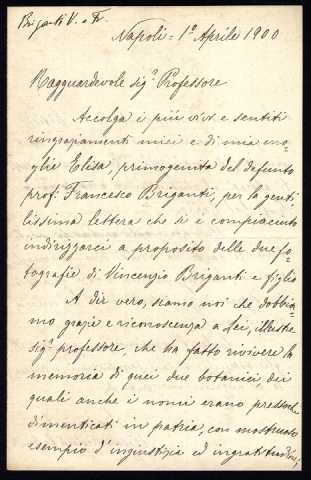 Briganti V. e Fr.
Napoli = 1º Aprile 1900
Ragguardevole sigʳ Professore
Accolga i più vivi e sentiti
ringraziamenti miei e di mia mo-
glie Elisa, primogenita del defunto
prof. Francesco Briganti, per la genti-
lissima lettera che si è compiaciuto
indirizzarci a proposito delle due fo-
tografie di Vincenzo Briganti e figlio
A dir vero, siamo noi che dobbia-
mo grazie e riconoscenza a Lei, illustre
sigʳ professore, che ha fatto rivivere la
memoria di quei due botanici, dei
quali anche i nomi erano pressoche
dimenticati in patria, con mostruoso
esempio d'ingiustizia ed ingratitudine;